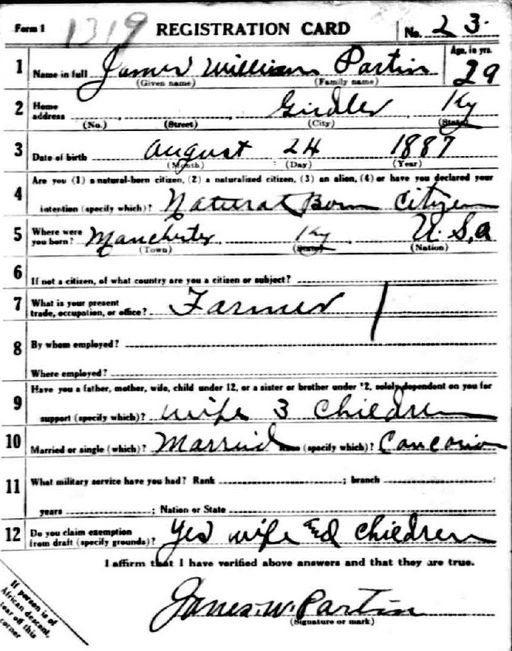 Form 1 1319 REGISTRATION CARD No. 23
1 Name in full James William Partin Age, in yrs. 29
(Given name) (Family name)
2 Home address Girdler Ky
(No.) (Street) (City) (State)
3 Date of birth August 24 1887
(Month) (Day) (Year)
Are you (1) a natural-born citizen, (2) a naturalized citizen, (3) an alien, (4) or have you declared your
4 intention (specify which)? Natural Born Citizen
5 Where were you born? Manchester Ky U.S,a
(Town) (State) (Nation)
6 If not a citizen, of what country are you a citizen or subject?
7 What is your present trade, occupation, or office? Farmer
8 By whom employed?
Where employed?
9 Have you a father, mother, wife, child under 12, or a sister or brother under 12, solely dependent on you for
support (specify which)? wife 3 children
10 Married or single (which)? Married Race (specify which)?
11 What military service have you had? Rank ; branch
years ; Nation or State
12 Do you claim exemption from draft (specify grounds)? Yes wife children
I affirm that I have verified above answers and that they are true.
James W. Partin
(Signature or mark)
If person is of
African descent,
tear off this
corner